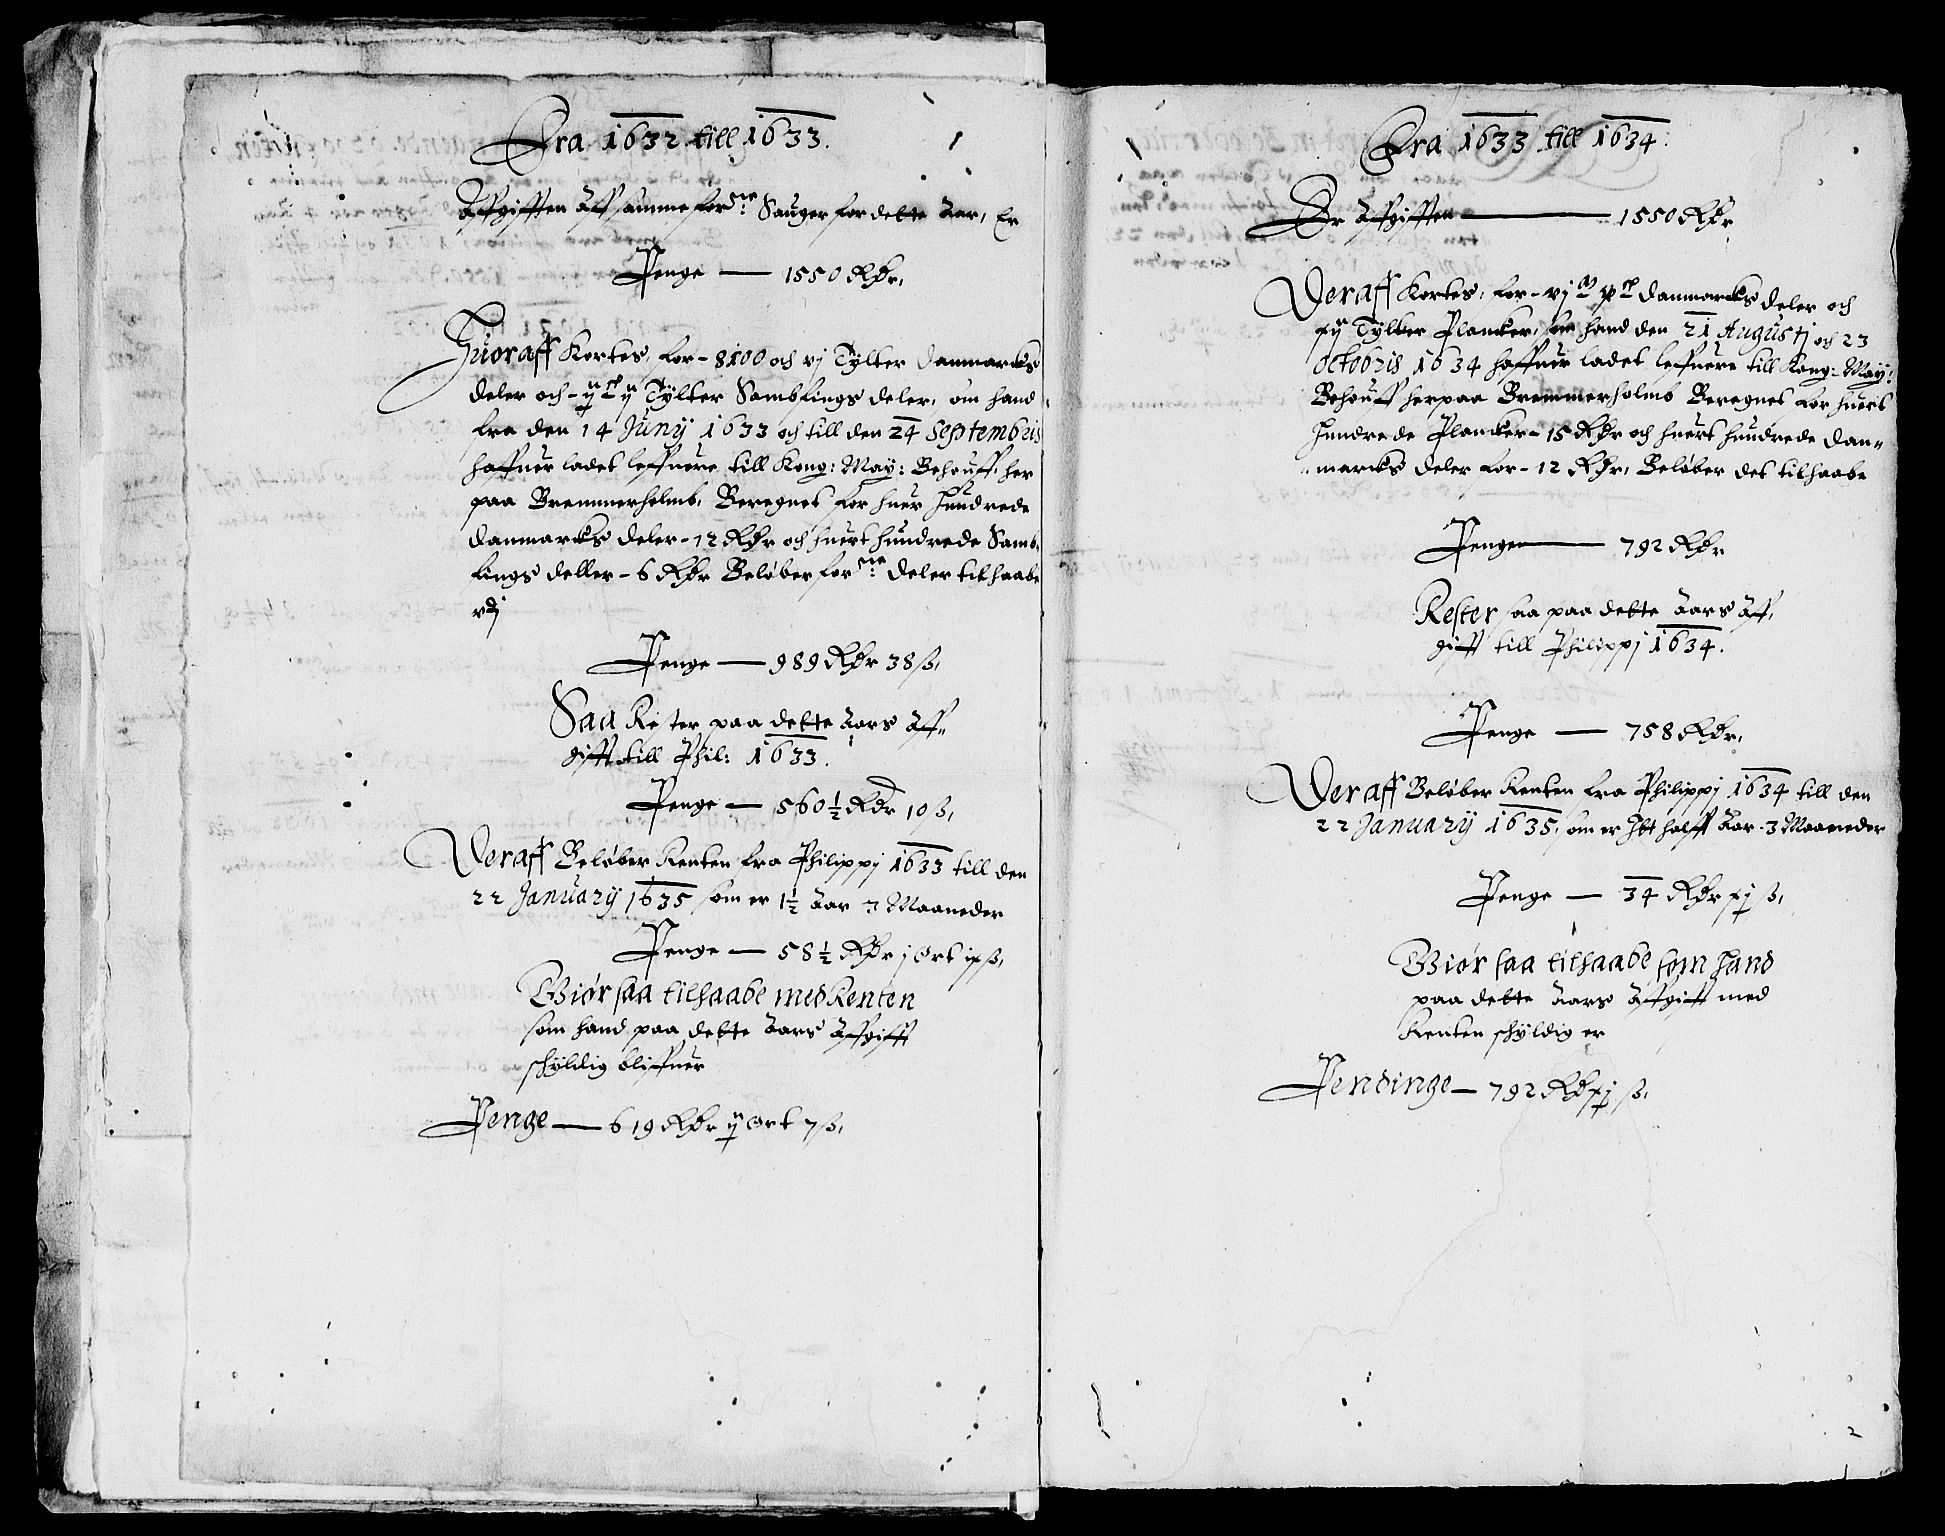 Fra 1632 till 1633.
Affgifften Aff samme forne: Sauger for dette Aar, Er
Penge — 1550 Rdr,
Huoraff Kortes, for - 8100 och vj Tylter Danmarcks
deler och - ij c ij Tylter Samblings deler, om hand
fra den 14 Junij 1633 och till den 24 Septembris
haffuer ladet leffuere till Kong: May: Behouff, her
paa Bremmerholmb, Beregnet for huer Hundrede
Danmarcks deler - 12 Rdr och huert hundrede Samb-
lings deller - 6 Rdr Beløber forne: deler tilhaabe
vdj
Penge — 989 Rdr 38 ß,
Saa Rester paa dette Aars Aff-
gifft till Phil: 1633.
Penge — 560½ Rdr 10 ß,
Deraff Beløber Renten fra Philippj 1633 till den
22 Januarij 1635 som er 1½ Aar 3 Maaneder
Penge — 58½ Rdr j Ort ix ß,
Giør saa tilhaabe med Renten
som hand paa dette Aars Affgifft
schyldig bliffuer
Penge — 619 Rdr ij Ort 7 ß,
Fra 1633 till 1634.
Er Affgifften — 1550 Rdr
Deraff Kortes, for - vj M Danmarcks deler och
xij Tylter Plancker, som hand den 21 Augustj och 23
Octobris 1634 haffuer ladet leffuere till Kong: May:
Behouff herpaa Bremmerholmb Beregnet for huert
Hundrede Plancker - 15 Rdr och huert hundrede Dan-
marcks deler for - 12 Rdr, Beløber det tilhaabe
Penge — 792 Rdr
Rester saa paa dette Aars Aff-
gifft till Philippj 1634.
Penge — 758 Rdr,
Deraff Beløber Renten fra Philippj 1634 till den
22 Januarij 1635, som er Jtt halff Aar 3 Maaneder
Penge — 34 Rdr xj ß,
Giør saa tilhaabe som hand
paa dette Aars Affgifft med
Renten schyldig er
Pendinge — 792 Rd xj ß,
2